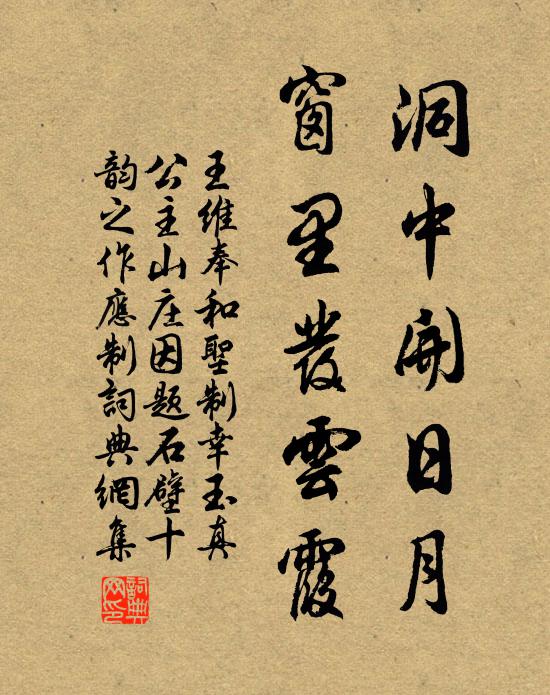 洞中開日月
窗里發雲霞
王維奉和聖制幸玉真
公主山庄因題石壁十
韵之作應制詞典網集
詞典
网印